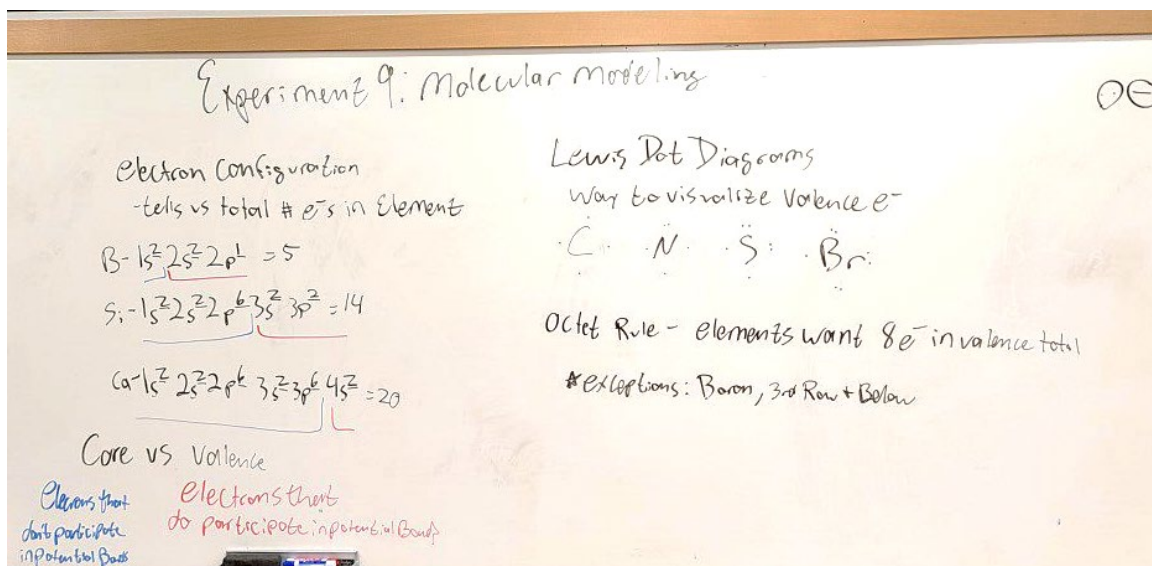 Experiment 9: Molecular Modeling
electron configuration
-tells us total # e⁻s in Element
B-1s²2s²2p¹ = 5
Si-1s²2s²2p⁶3s²3p² = 14
Ca-1s²2s²2p⁶3s²3p⁶4s² = 20
Core vs Valence
Elecrons that
don't participate
in potential Bonds
electrons that
do participate in potential Bonds
Lewis Dot Diagrams
way to visualize Valence e⁻
C N S Br
Octet Rule - elements want 8e⁻ in valence total
*exceptions: Boron, 3rd Row + Below